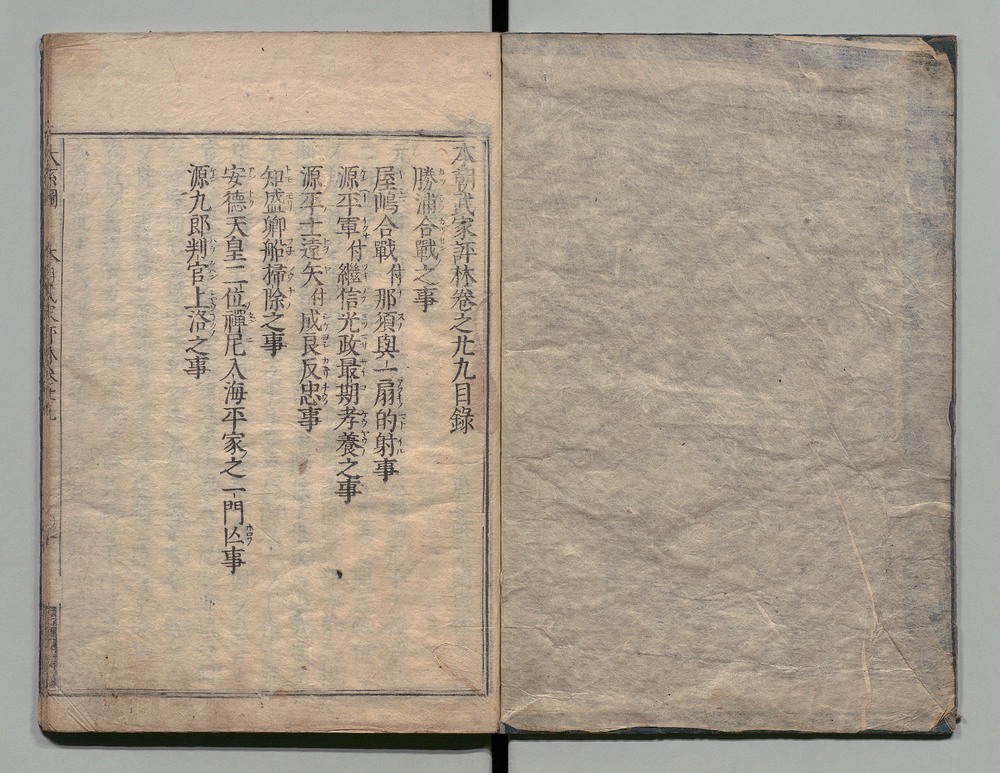 本朝武家評林卷之廿九目錄
勝浦合戰之事
屋嶋合戰付那須與一扇的射事
源平軍付繼信光政最期孝養之事
源平士遠矢付成良反忠事
知盛卿船掃除之事
安德天皇二位禪尼入海平家之一門亾事
源九郎判官上洛之事